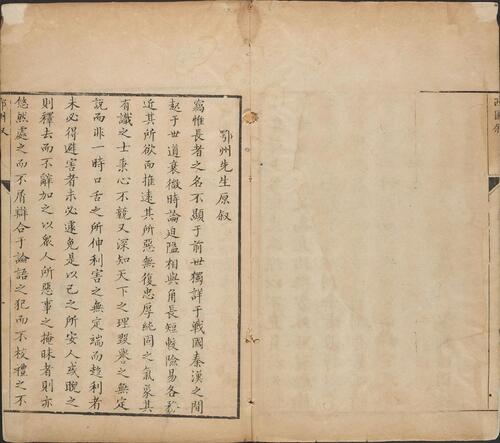 鄂州先生原叙
竊惟長者之名不顯于前世獨詳于戰國秦漢之間
起于世道衰微時論迫隘相與角長短較險易各
近其所欲而推遠其所惡無復忠厚純同之氣象其
有識之士秉心不競又深知天下之理毀譽之無定
說而非一時口舌之所伸利害之無定端而趨利者
未必得避害者未必遽免是以己之所安人或睨之
則釋去而不辭加之以眾人所惡事之掩昧者則亦
悠然處之而不屑辯合于論語之犯而不校禮之不